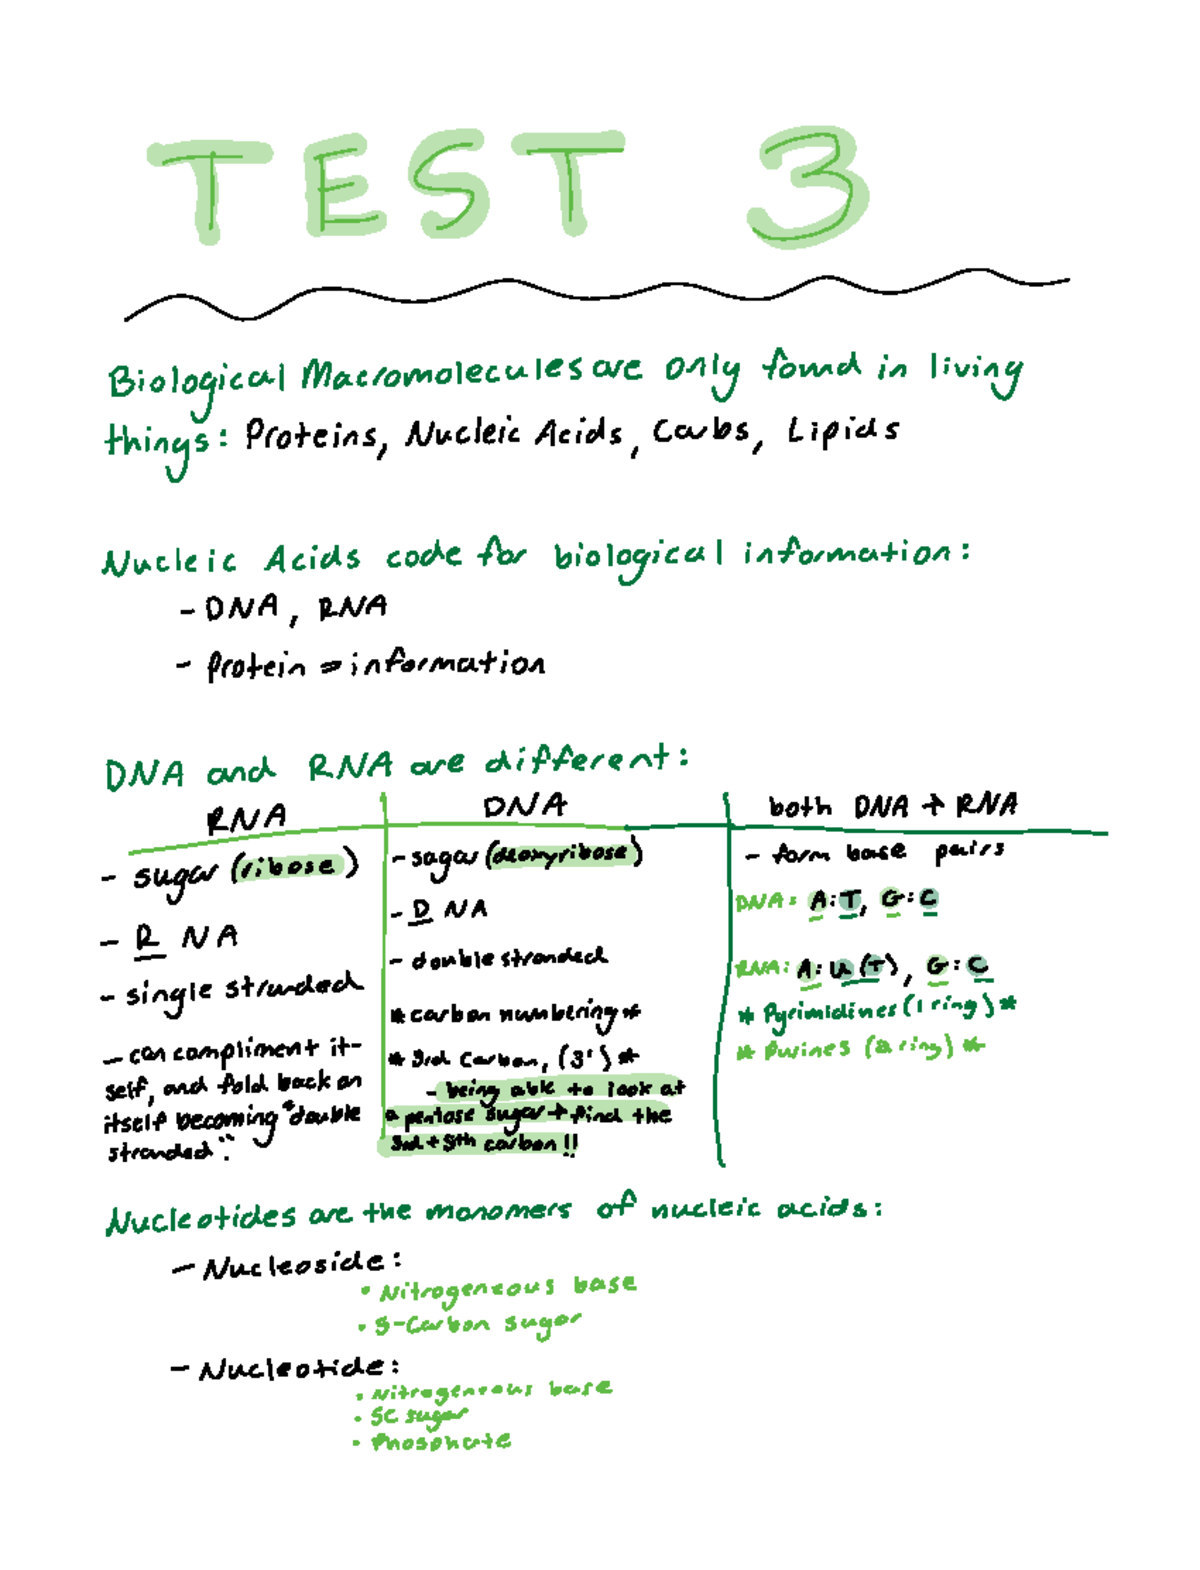 TEST 3
Biological Macromolecules are only found in living
things: Proteins, Nucleic Acids, Carbs, Lipids
Nucleic Acids code for biological information:
- DNA, RNA
- Protein = information
DNA and RNA are different:
RNA
- sugar (ribose)
- R NA
- single stranded
- can compliment it-
self, and fold back on
itself becoming "double
stranded".
DNA
- sugar (deoxyribose)
- D NA
- double stranded
* carbon numbering *
* 3rd Carbon, (3') *
- being able to look at
a pentose sugar + find the
3rd + 5th carbon!!
both DNA + RNA
- form base pairs
DNA: A:T, G:C
RNA: A:U(T), G:C
* Pyrimidines (1 ring) *
* Purines (2 ring) *
Nucleotides are the monomers of nucleic acids:
- Nucleoside:
• Nitrogeneous base
• 5-Carbon sugar
- Nucleotide:
• Nitrogeneous base
• 5C sugar
• Phosphate